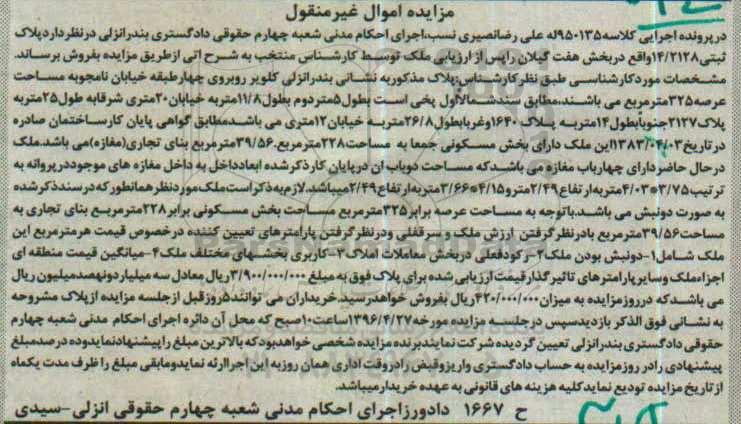 مزایده اموال غیرمنقول
درپرونده اجرایی کلاسه ۹۵۰۱۳۵له علی رضانصیری نسب،اجرای احکام مدنی شعبه چهارم حقوقی دادگستری بندرانزلی درنظرداردپلاک
ثبتی ۱۴/۲۱۲۸واقع دربخش هفت گیلان راپس ازارزیابی ملک توسط کارشناس منتخب به شرح اتی ازطریق مزایده بفروش برساند.
مشخصات موردکارشناسی طبق نظرکارشناس:پلاک مذکوربه نشانی بندرانزلی کلویر روبروی چهارطبقه خیابان نامجوبه مساحت
عرصه۳۲۵مترمربع می باشند،مطابق سندشمالااول پخی است بطول۵متردوم بطول۱۱/۸متربه خیابان۲۰متری شرقابه طول۲۵متربه
پلاک۲۱۲۷جنوباًبطول۱۴متربه پلاک۱۶۴۰وغربابطول۲۶/۸متربه خیابان۱۲متری می باشدمطابق گواهی پایان کارساختمان صادره
درتاریخ۱۳۸۳/۰۴/۰۳این ملک دارای بخش مسکونی جمعا به مساحت۲۲۸مترمربع.۳۹/۵۶مترمربع بنای تجاری(مغازه)می باشد.ملک
درحال حاضردارای چهارباب مغازه می باشدکه مساحت دوباب آن درپایان کارذکرشده ابعادداخل به داخل مغازه های موجوددرپروانه به
ترتیب۳/۷۵*۴/۰۳متربه ارتفاع۲/۴۹مترو۴/۱۵*۳/۶۶متربه ارتفاع۲/۴۹میباشد.لازم به ذکراست ملک موردنظرهمانطورکه درسندذکرشده
به صورت دونبش می باشد.باتوجه به مساحت عرصه برابر۳۲۵مترمربع مساحت بخش مسکونی برابر۲۲۸مترمربع بنای تجاری به
مساحت۳۹/۵۶مترمربع بادرنظرگرفتن ارزش ملک وسرقفلی ودرنظرگرفتن پارامترهای تعیین کننده درخصوص قیمت هرمترمربع این
ملک شامل۱-دونبش بودن ملک۲-رکودفعلی دربخش معاملات املاک۳-کاربری بخشهای مختلف ملک۴-میانگین قیمت منطقه ای
اجزاءملک وسایرپارامترهای تاثیرگذارقیمت ارزیابی شده برای پلاک فوق به مبلغ ۳/۹۰۰/۰۰۰/۰۰۰ریال معادل سه میلیاردونهصدمیلیون ریال
می باشدکه درروزمزایده به میزان۴۲۰/۰۰۰/۰۰۰ریال بفروش خواهدرسید.خریداران می توانند۵روزقبل ازجلسه مزایده ازپلاک مشروحه
به نشانی فوق الذکربازدیدسپس درجلسه مزایده مورخه۱۳۹۶/۴/۲۷ساعت۱۰صبح که محل آن دائره اجرای احکام مدنی شعبه چهارم
حقوقی دادگستری بندرانزلی تعیین گردیده شرکت نمایندبرنده مزایده شخصی خواهدبودکه بالاترین مبلغ راپیشنهادنمایدوده درصدمبلغ
پیشنهادی رادر روزمزایده به حساب دادگستری واریزوقبض رادروقت اداری همان روزبه این اجراارئه نمایدومابقی مبلغ را ظرف مدت یکماه
ازتاریخ مزایده تودیع نمایدکلیه هزینه های قانونی به عهده خریدارمیباشد.
ح ۱۶۶۷ دادورزاجرای احکام مدنی شعبه چهارم حقوقی انزلی-سیدی